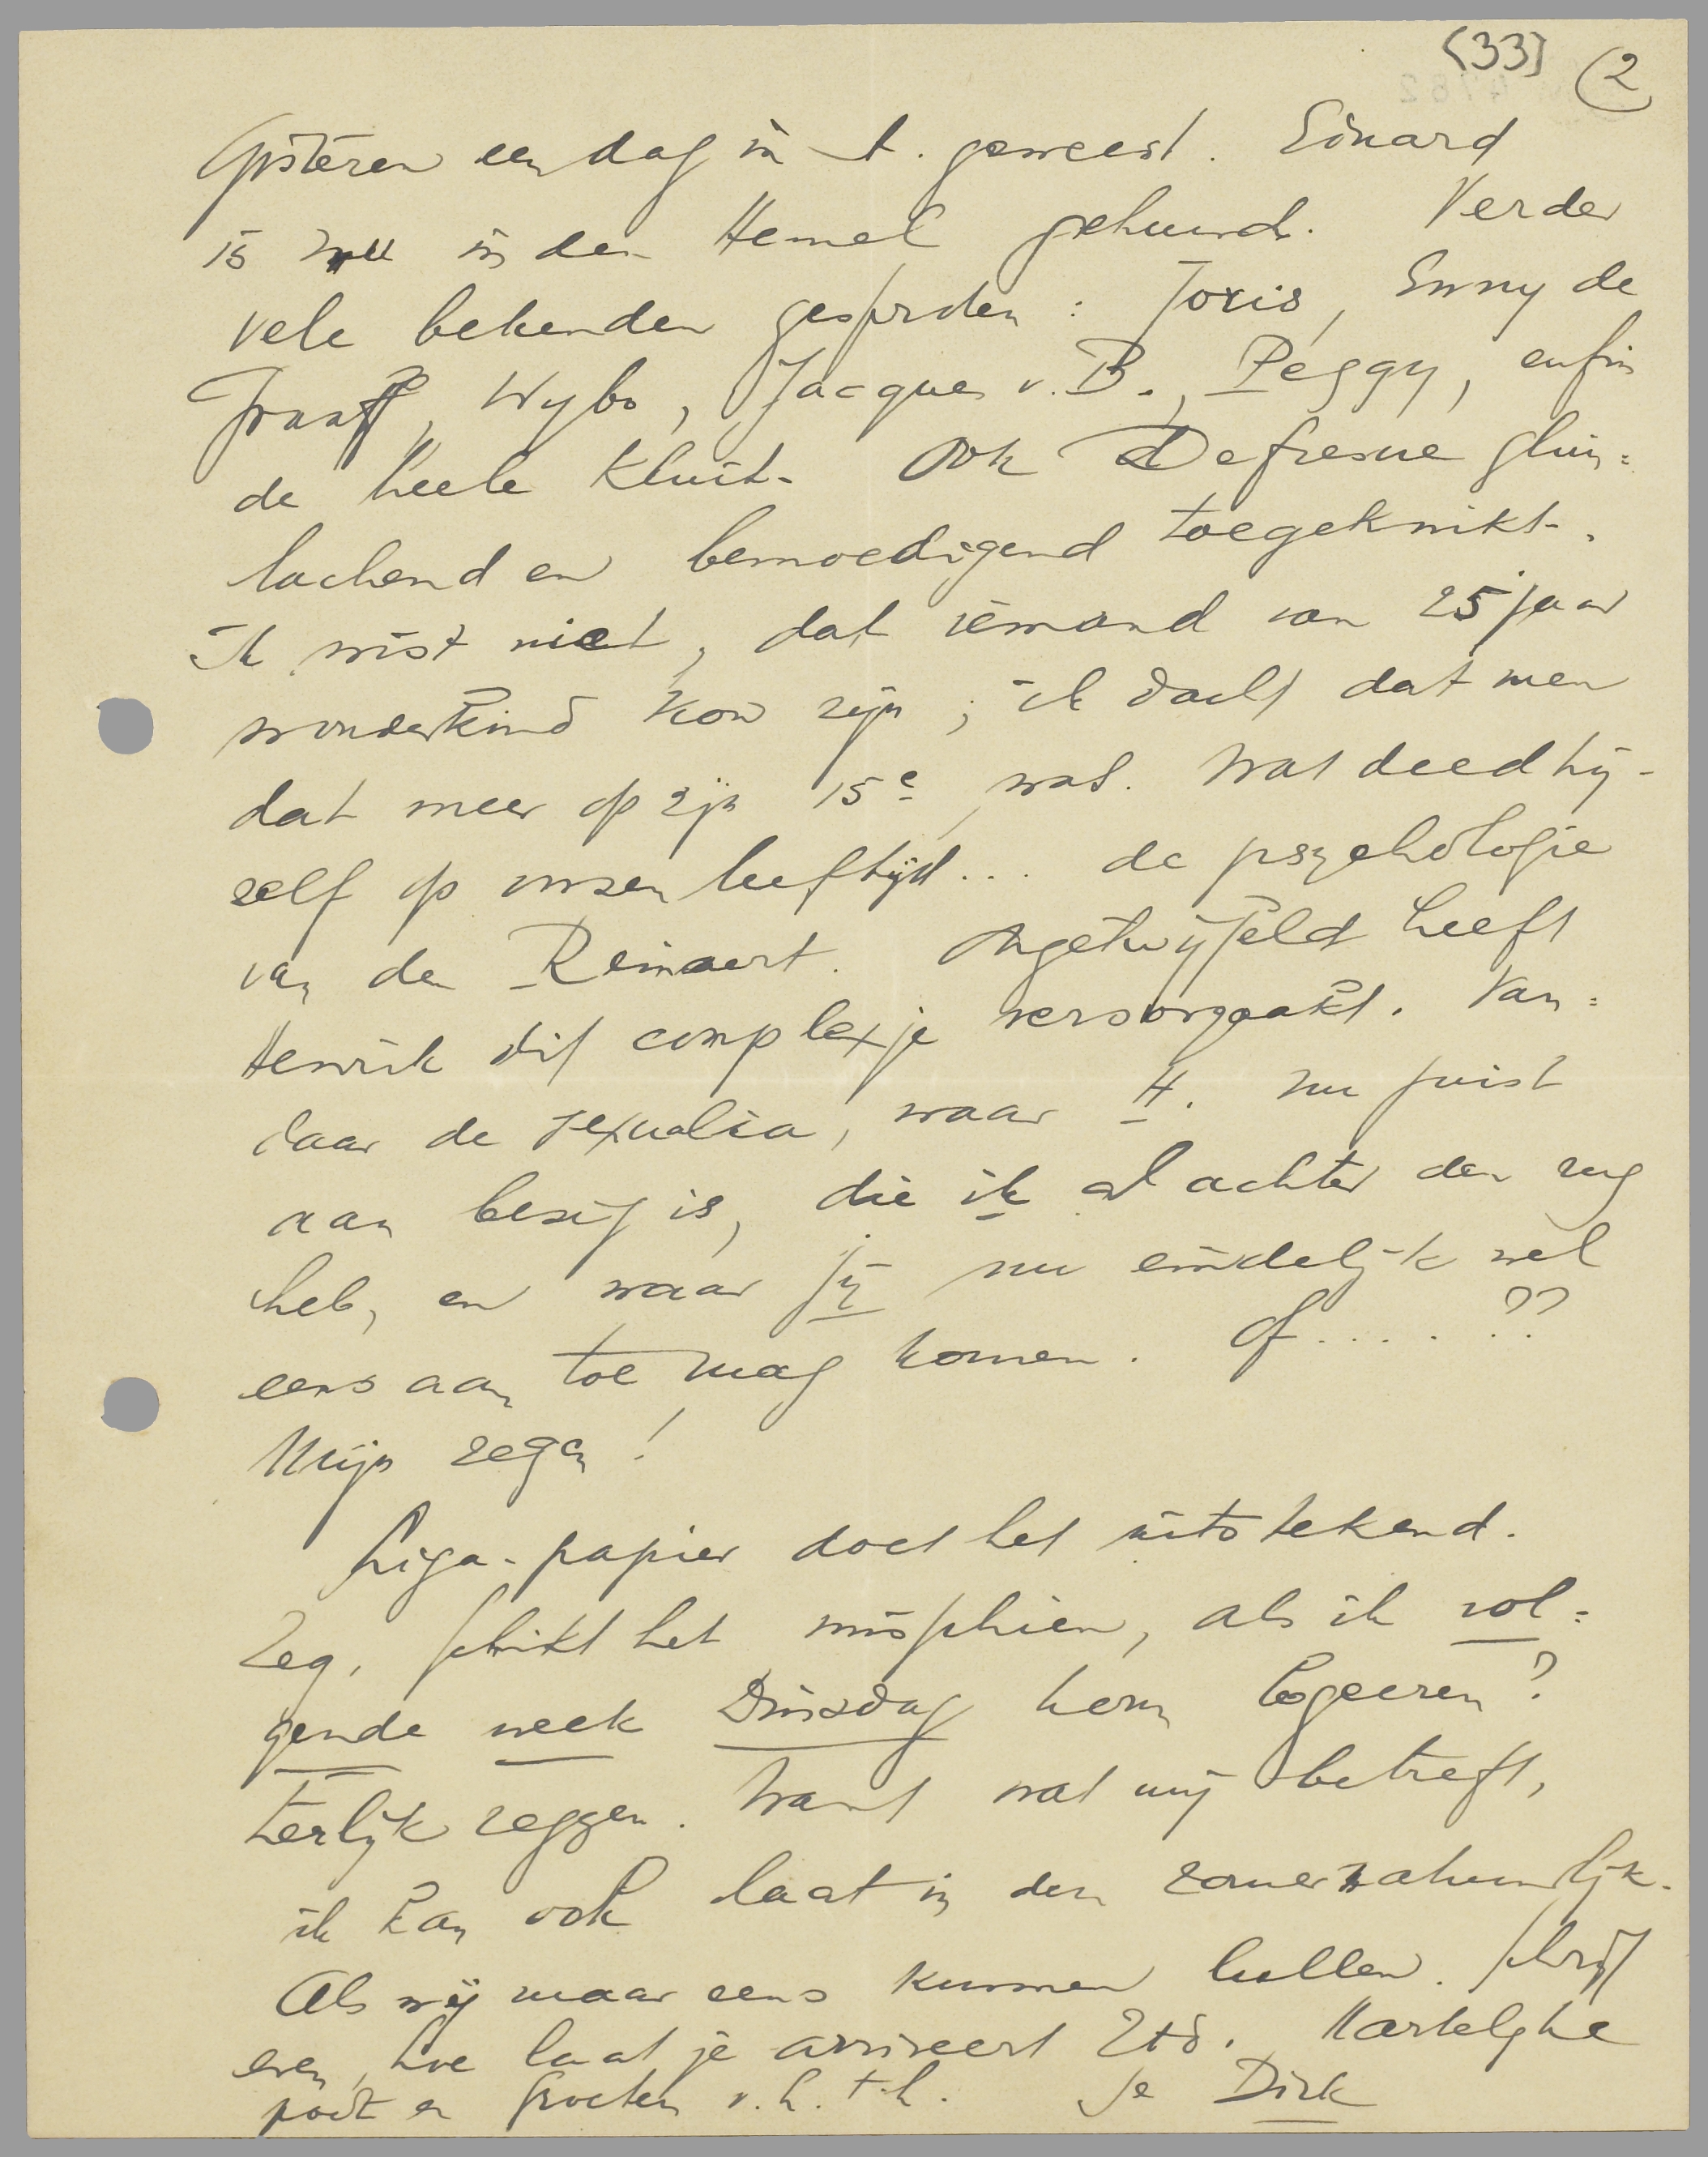 (33) (2
Gisteren een dag in A. geweest. Eduard
is nu in den Hemel gehuurd. Verder
vele bekenden gesproken: Joris, Enny de
Jraaff, Wybo, Jacques v. B., Peggy, enfin
de heele kluit. Ook Defresne glim=
lachend en bemoedigend toegeknikt.
Ik wist niet, dat iemand van 25 jaar
wonderkind kon zijn; ik dacht dat men
dat meer op zijn 15e was. Wat deed hij-
zelf op onzen leeftijd... de psychologie
van den Reinaert. Ongetwijfeld heeft
Henrik dit complexje veroorzaakt. Van=
daar de sexualia, waar H. nu juist
aan bezig is, die ik al achter den rug
heb, en waar jij nu eindelijk wel
eens aan toe mag komen. Of.... ??
Mijn zegen!
Liga-papier doet het uitstekend.
Zeg, schikt het misschien, als ik vol=
gende week Dinsdag kom logeeren?
Eerlijk zeggen. Want wat mij betreft,
ik kan ook laat in den zomer natuurlijk.
Als wij maar eens kunnen lullen. Schrijf
even, hoe laat je arriveert etc. Hartelijke
poot en groeten v. h. t. h. Je Dirk